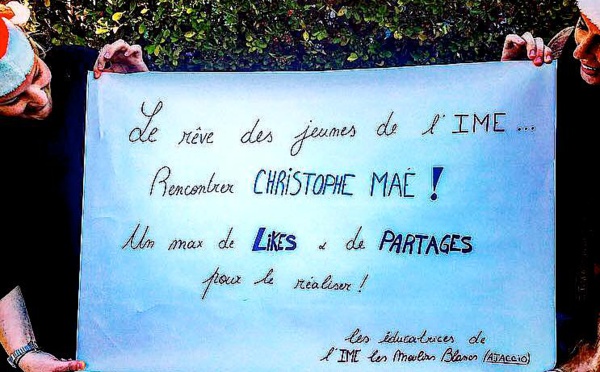 Le rêve des jeunes de l'IME...
Rencontrer CHRISTOPHE MAÉ !
Un max de LIKES & de PARTAGES
pour le réaliser !
les éducatrices de
l'IME les Moulins Blancs (AJACCIO)